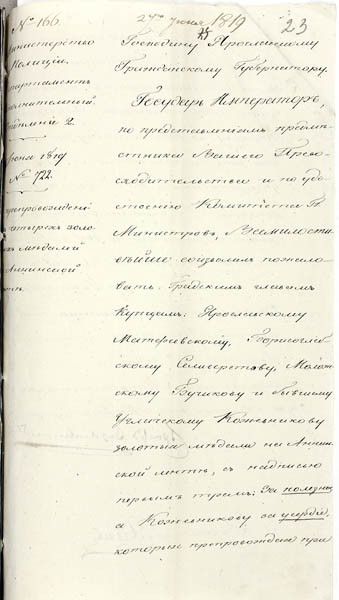 № 166.
27го Июня 1819
23
Министерство
Полиции.
Департамент
Исполнительный.
Отделение 2.
Июня 1819
№ 722.
золо
медалей
Аннинской
Господину Ярославскому
Гражданскому Губернатору.
Государь Император,
по представлениям предмѣ-
стника Вашего Прево-
сходительства и по удо-
стоенію Комитета Гг.
Министров, Всемилости-
вѣйше соизволил пожало-
вать: Градским главам
Купцам: Ярославскому
Матвеевскому, Борисоглеб-
скому Селиверстову, Молож-
скому Бучикову и бывшему
Угличскому Кожевникову
золотыя медали на Аннин-
ской лентѣ, съ надписью
первым трем: За полезное,
а Кожевникову за усердіе,
которые препровождая при